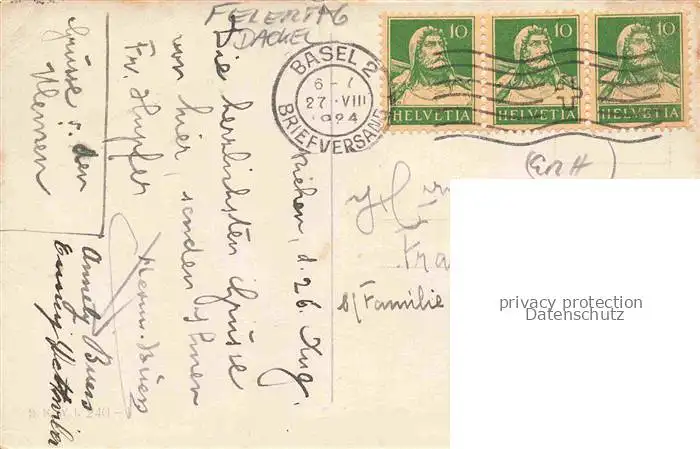 FEIERTAG
DACKEL
BASEL 2
6-7
27. VIII
1924
BRIEFVERSAND
10
HELVETIA
10
HELVETIA
10
HELVETIA
Riehen, d. 26. Aug.
Die herzlichsten Grüsse
von hier, senden Ihnen
Fr. Hupfer
Grüsse
den
Kleinen
Annety Buess
Emmy
Herm. Buess
Fra
s/ Familie
privacy protection
Datenschutz